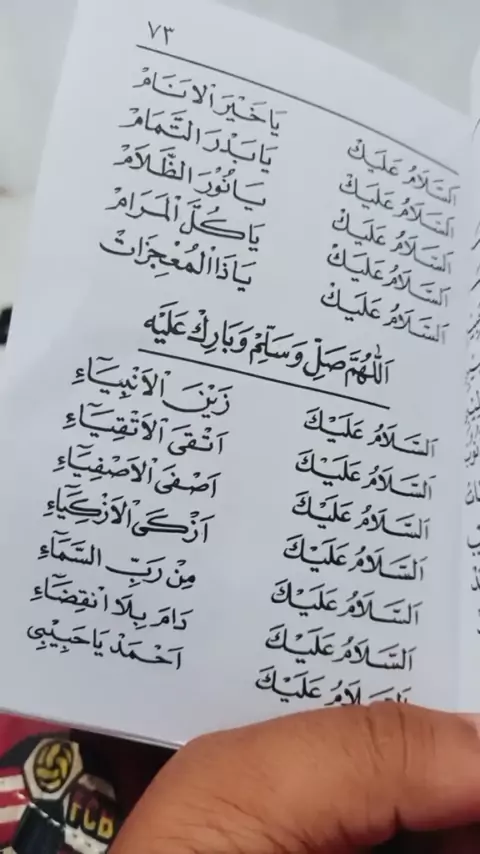 ٧٣
اَلسَّلَامُ عَلَيْكَ يَاخَيْرَ الْاَنَامْ
اَلسَّلَامُ عَلَيْكَ يَابَدْرَ التَّمَامْ
اَلسَّلَامُ عَلَيْكَ يَانُوْرَ الظَّلَامْ
اَلسَّلَامُ عَلَيْكَ يَاكُلَّ الْمَرَامْ
اَلسَّلَامُ عَلَيْكَ يَاذَا الْمُعْجِزَاتْ
اَللّٰهُمَّ صَلِّ وَسَلِّمْ وَبَارِكْ عَلَيْه
اَلسَّلَامُ عَلَيْكَ زَيْنَ الْاَنْبِيَآءِ
اَلسَّلَامُ عَلَيْكَ اَتْقَى الْاَتْقِيَآءِ
اَلسَّلَامُ عَلَيْكَ اَصْفَى الْاَصْفِيَآءِ
اَلسَّلَامُ عَلَيْكَ اَزْكَى الْاَزْكِيَآءِ
اَلسَّلَامُ عَلَيْكَ مِنْ رَبِّ السَّمَآءِ
اَلسَّلَامُ عَلَيْكَ دَامَ بِلَا انْقِضَآءِ
اَلسَّلَامُ عَلَيْكَ اَحْمَدْ يَاحَبِيْبِي
FCB